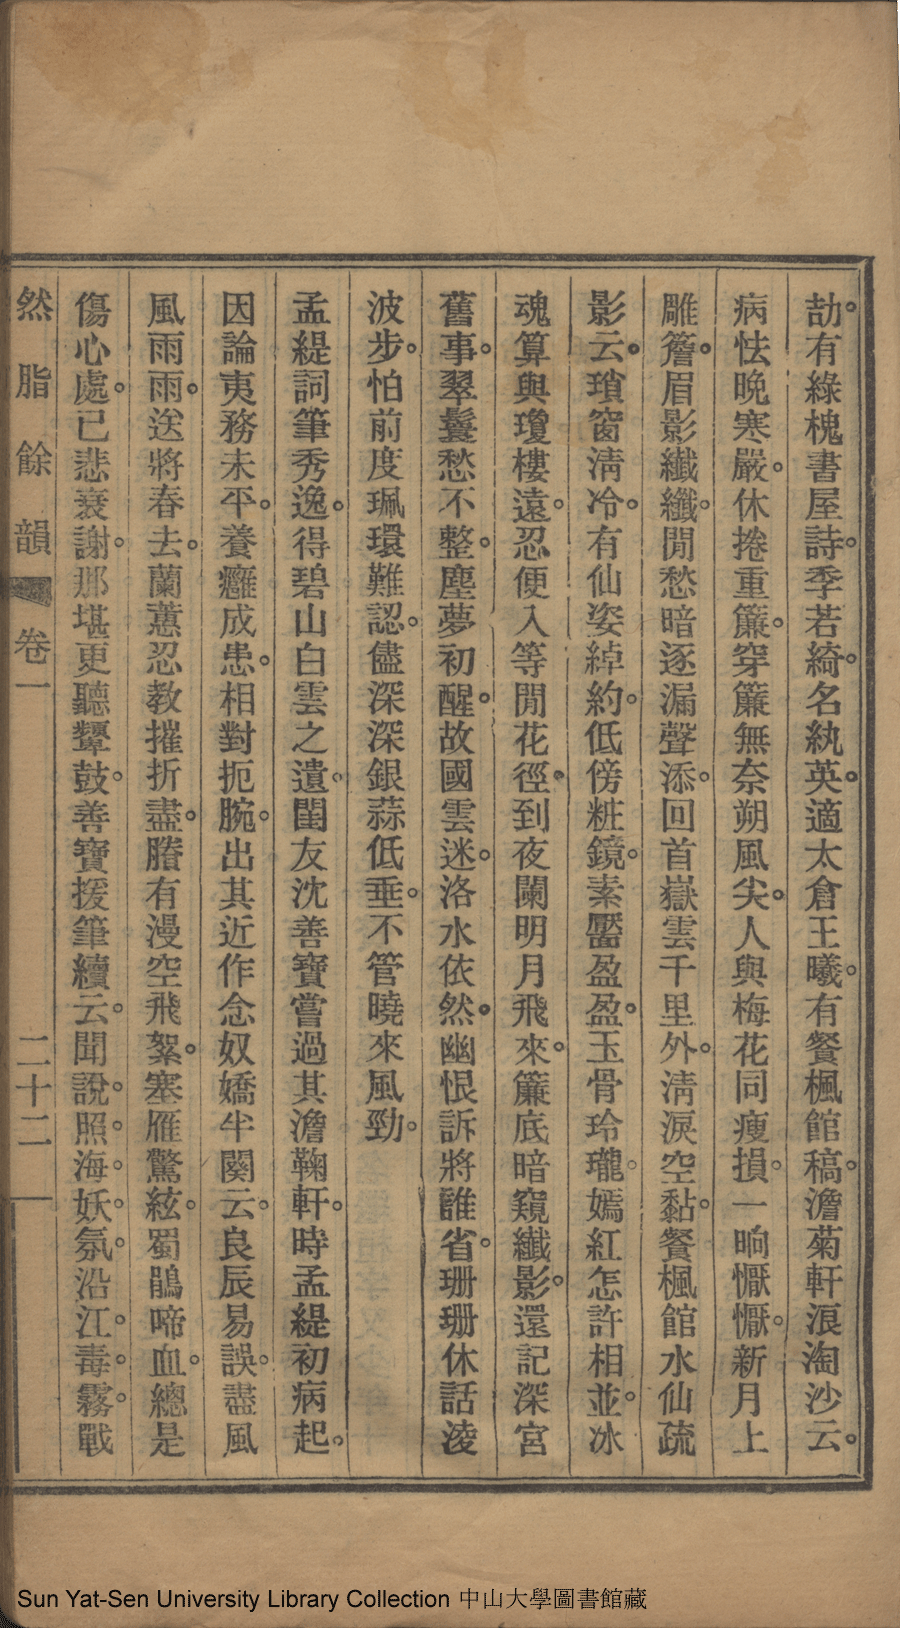 劼。有綠槐書屋詩。季若綺。名紈英。適太倉王曦。有餐楓館稿。澹菊軒浪淘沙云。
病怯晚寒嚴。休捲重簾。穿簾無奈朔風尖。人與梅花同瘦損。一晌懨懨。新月上
雕簷。眉影纖纖。閒愁暗逐漏聲添。回首嶽雲千里外。淸淚空黏。餐楓館水仙疏
影云。瑣窗淸冷。有仙姿綽約。低傍粧鏡。素靨盈盈。玉骨玲瓏。嫣紅怎許相並。冰
魂算與瓊樓遠。忍便入等閒花徑。到夜闌明月飛來。簾底暗窺纖影。還記深宮
舊事。翠鬟愁不整。塵夢初醒。故國雲迷。洛水依然。幽恨訴將誰省。珊珊休話淩
波步。怕前度珮環難認。儘深深銀蒜低垂。不管曉來風勁。
孟緹詞筆秀逸。得碧山白雲之遺。閨友沈善寶嘗過其澹鞠軒。時孟緹初病起。
因論夷務未平。養癰成患。相對扼腕。出其近作念奴嬌半闋云。良辰易誤。盡風
風雨雨。送將春去。蘭蕙忍教摧折盡。賸有漫空飛絮。塞雁驚絃。蜀鵑啼血。總是
傷心處。已悲衰謝。那堪更聽鼙鼓。善寶援筆續云。聞說照海妖氛。沿江毒霧。戰
然脂餘韻 卷一 二十二
Sun Yat-Sen University Library Collection 中山大學圖書館藏